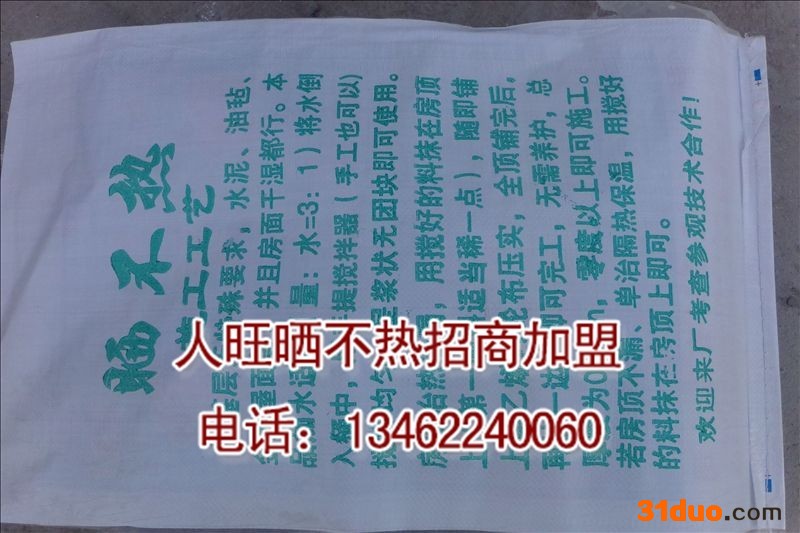 晒不热
施工工艺
层 殊要求，水泥、油毡、
屋面，并且房面干湿都行。本
品 水适 量：水=3：1）将水倒
入 中， 提搅拌器（手工也可以）
均匀 浆状无团块即可使用。
房 ，用搅好的料抹在房顶
上第一 适当稀一点），随即铺
上 乙 纶布压实，全顶铺完后，
再 一 即可完工，无需养护，总
厚 为0 ，零度以上即可施工。
若房顶不漏、单治隔热保温，用搅好
的料抹在房顶上即可。
欢迎来厂考查参观技术合作！
人旺晒不热招商加盟
电话：13462240060
31duo.com